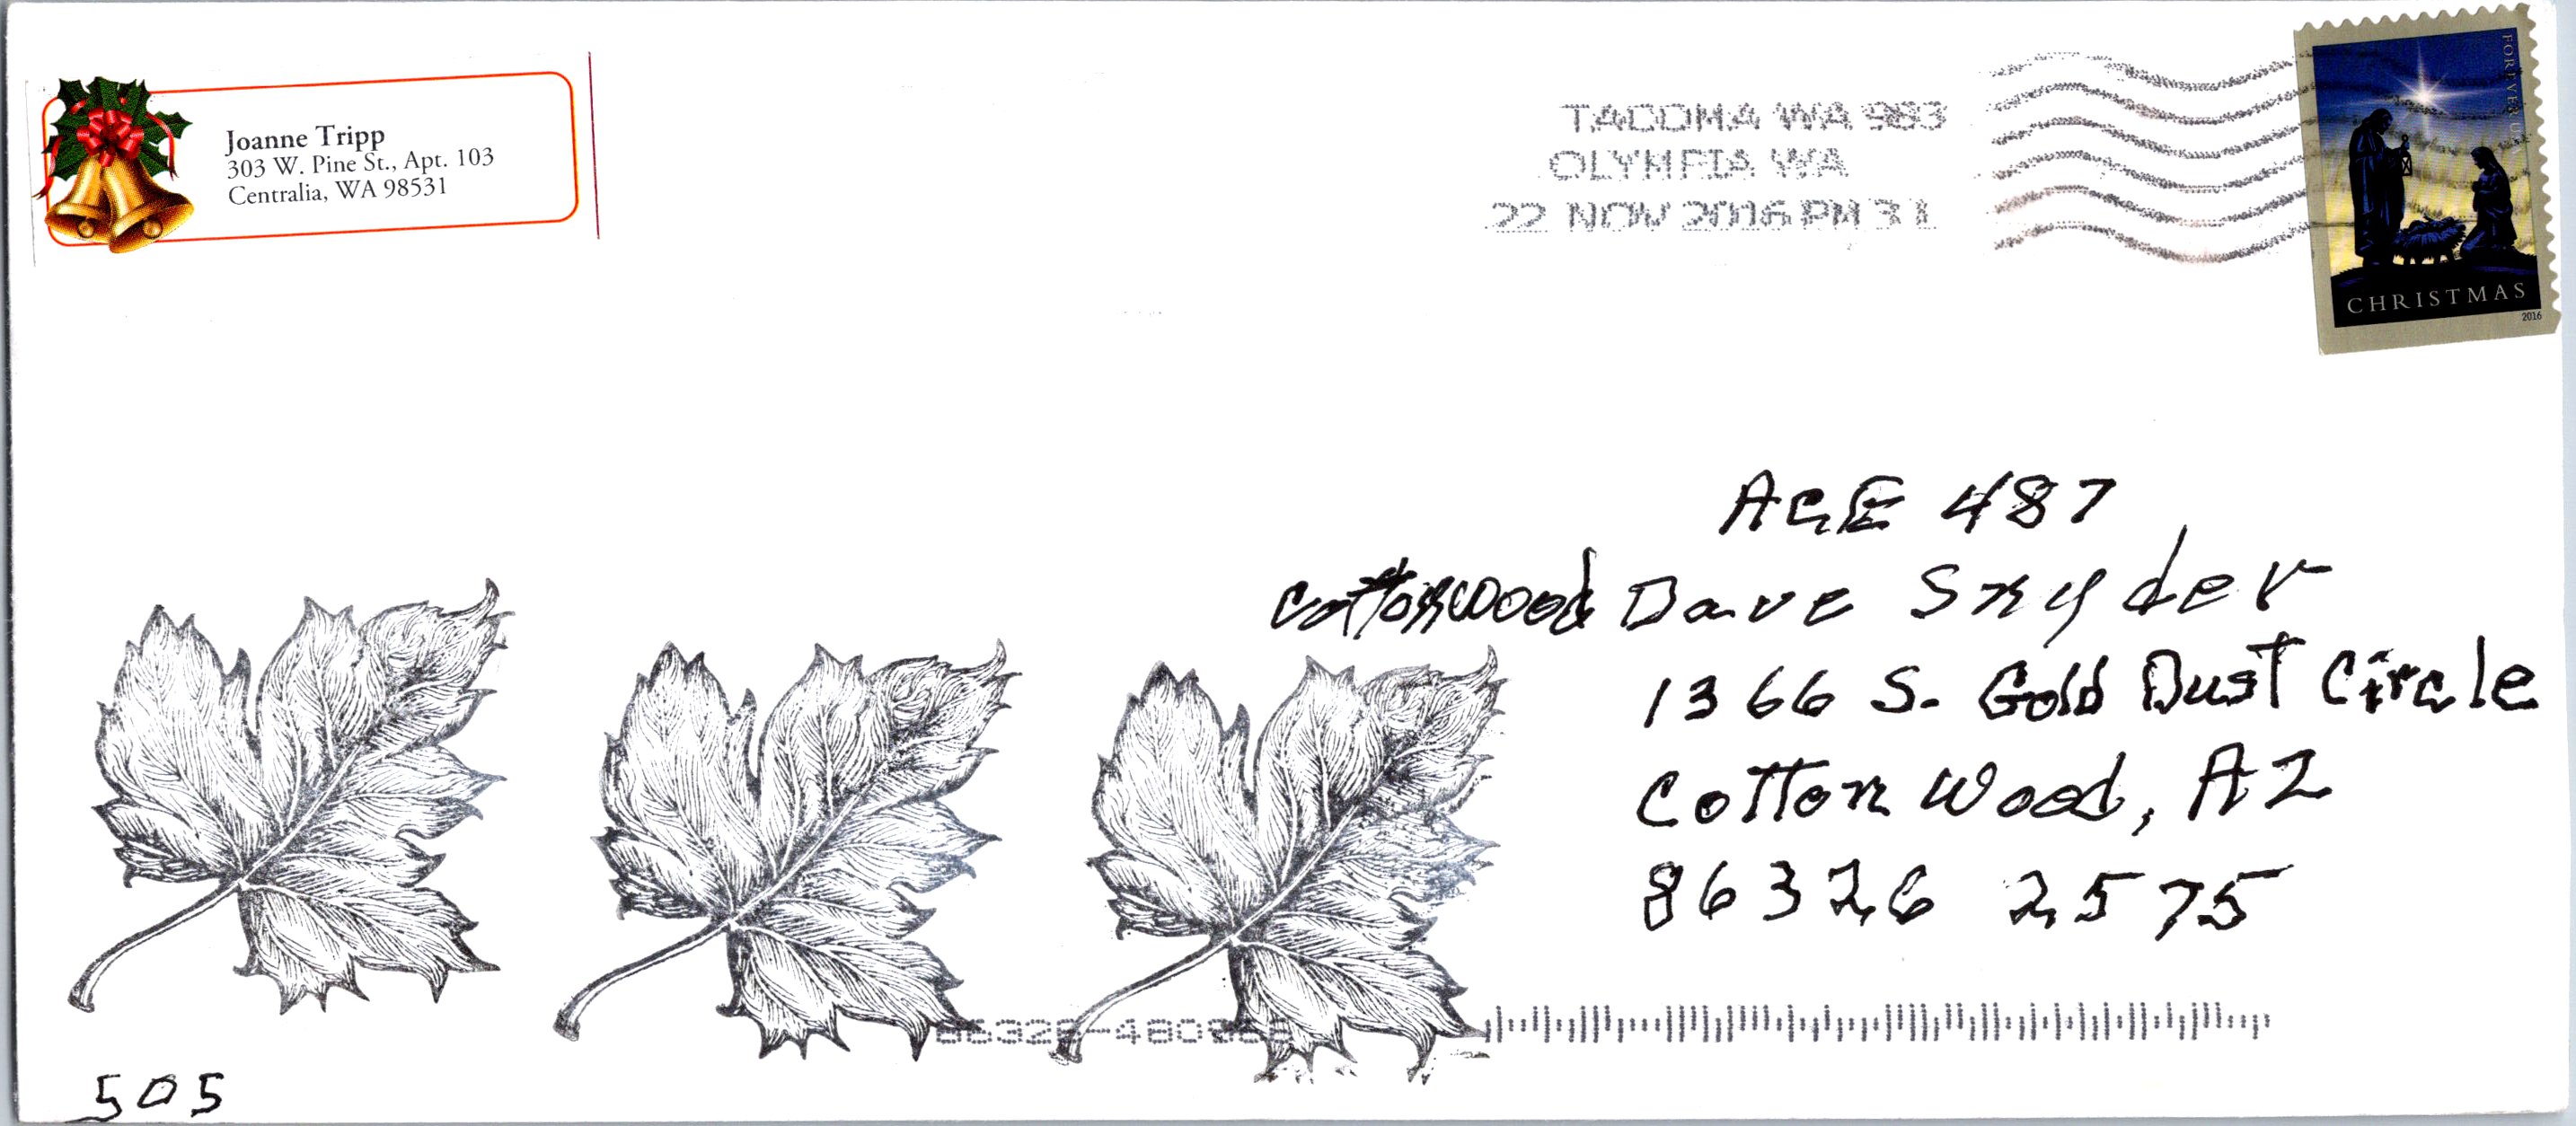 Joanne Tripp
303 W. Pine St., Apt. 103
Centralia, WA 98531
TACOMA WA 983
OLYMPIA WA
22 NOV 2016 PM 3 L
FOREVER USA
CHRISTMAS
2016
ACE 487
Cottonwood Dave Snyder
1366 S. Gold Dust Circle
Cotton Wood, AZ
86326 2575
505